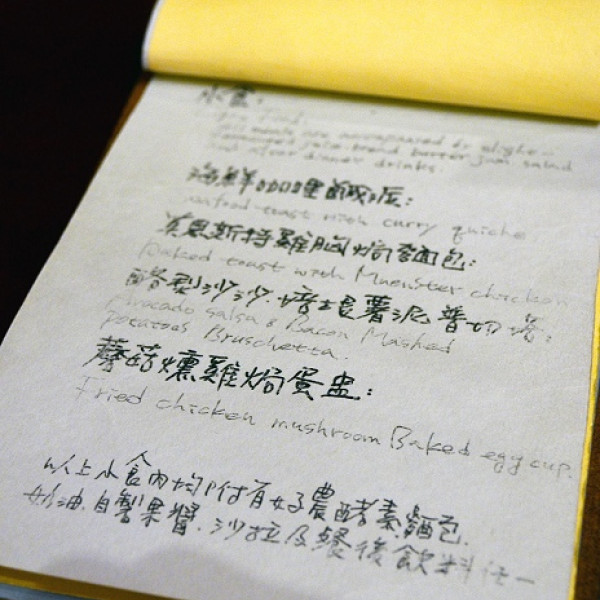 小食:
all meals are accompanied by
bread butter jam salad
and after dinner drinks.
海鮮咖哩鹹派:
seafood toast with curry quiche
芙恩斯特雞胸焗麵包:
Baked toast with Muenster chicken
酪梨沙沙.培根薯泥普切塔:
Avocado salsa & Bacon Mashed
potatoes Bruschetta.
蘑菇燻雞焗蛋盅:
Fried chicken mushroom Baked egg cup.
以上小食內均附有好農酵素麵包.
奶油.自製果醬.沙拉及餐後飲料任一